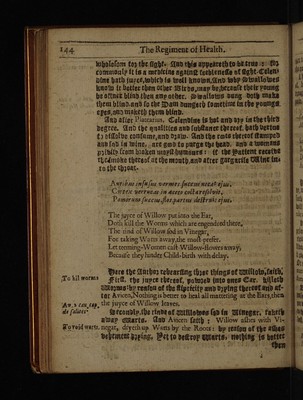 144 The Regiment of Health.
wholesom for the sight. And this appeareth to be true: for
commonly it is a medicine against feebleness of sight. Celen-
dine hath juice, which is well known. And why Swallowes
know it better then other Birds, may be, because their young
be oftner blind then any other. Swallows dung doth make
them blind, and so the Dam dungeth sometime in the youngs
eyes, and maketh them blind.
And after Platearius, Celendine is hot and dry in the third
degree. And the qualities and substance thereof, hath vertue
to dissolve consume, and draw. And the roots thereof stamped
and sod in wine, are good to purge the head, and a womans
privity from broken unwell humours: if the Patient receive
the smoke thereof at the mouth, and after gargarise
to the throat.
Auribus infusus vermes succus necat ejus,
Cortex verrucas in aceto cocta resolvit,
Pomorum succus, flos partus destruit ejus.
The juyce of Willow put into the Ear,
Doth kill the Worms which are engendred there,
The rind of Willow sod in Vinegar,
For taking Warts away, the most prefer.
Let teeming-Women cast Willow-flowers away,
Because they hinder Child-birth with delay.
To kill worms
Here the Author rehearsing three things of Willow, saith,
First, the juyce thereof, powred into ones Ear, killeth
Worms by reason of the stipticity and drying thereof and af-
ter Avicen, Nothing is better to heal all mattering at the Ears, then
the juyce of Willow leaves.
Secondly, the rinde of Willowes sod in Vinegar, taketh
To void warts.
away Warts. And Avicen saith: Willow ashes with Vi-
negar, dryeth up Warts by the Roots: by reason of the ashes
vehement drying. Yet to destroy Warts, nothing is better
then